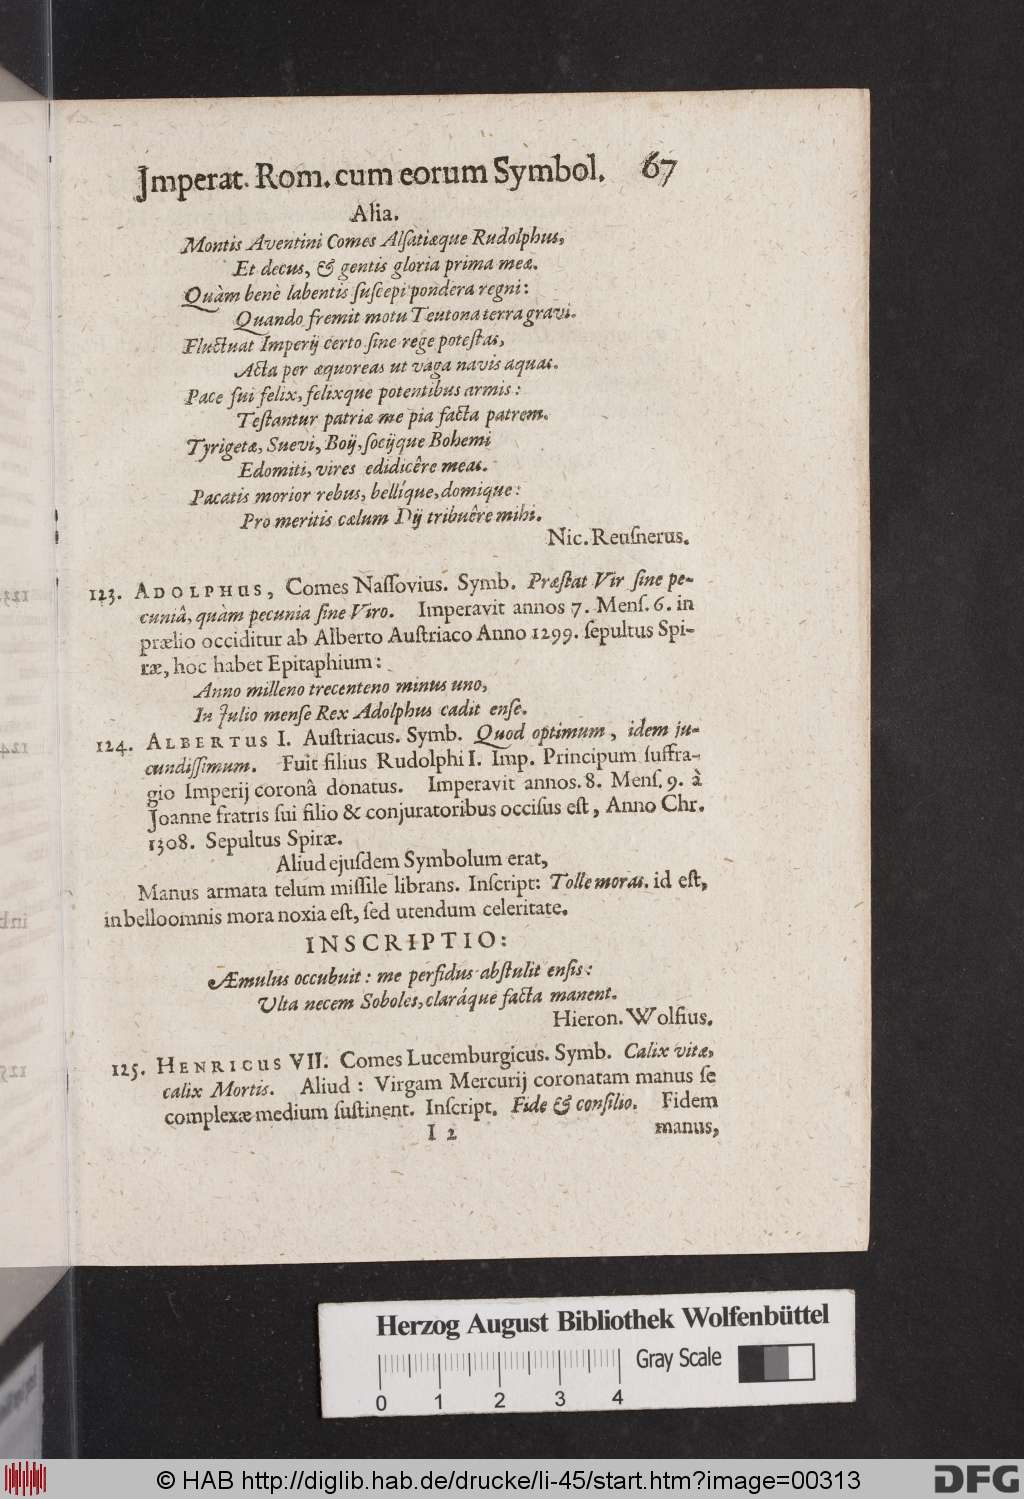 Jmperat. Rom. cum eorum Symbol. 67
Alia.
Montis Aventini Comes Alſatiæque Rudolphus,
Et decus, & gentis gloria prima meæ.
Quàm benè labentis ſuſcepi pondera regni:
Quando fremit motu Teutona terra gravi.
Fluctuat Imperij certo ſine rege poteſtas,
Acta per æquoreas ut vaga navis aquas.
Pace fui felix, felixque potentibus armis:
Teſtantur patriæ me pia facta patrem.
Tyrigetæ, Suevi, Boij, ſocijque Bohemi
Edomiti, vires edidicêre meas.
Pacatis morior rebus, bellíque, domique:
Pro meritis cælum Dij tribuêre mihi.
Nic. Reuſnerus.
123. ADOLPHUS, Comes Naſſovius. Symb. Præſtat Vir ſine pe-
cuniâ, quàm pecunia ſine Viro. Imperavit annos 7. Menſ. 6. in
prælio occiditur ab Alberto Auſtriaco Anno 1299. ſepultus Spi-
ræ, hoc habet Epitaphium:
Anno milleno trecenteno minus uno,
In Julio menſe Rex Adolphus cadit enſe.
124. ALBERTUS I. Auſtriacus. Symb. Quod optimum, idem ju-
cundiſſimum. Fuit filius Rudolphi I. Imp. Principum ſuffra-
gio Imperij coronâ donatus. Imperavit annos. 8. Menſ. 9. à
Joanne fratris ſui filio & conjuratoribus occiſus eſt, Anno Chr.
1308. Sepultus Spiræ.
Aliud ejuſdem Symbolum erat,
Manus armata telum miſſile librans. Inſcript: Tolle moras. id eſt,
in bello omnis mora noxia eſt, ſed utendum celeritate.
INSCRIPTIO:
Æmulus occubuit: me perfidus abſtulit enſis:
Ulta necem Soboles, claráque facta manent.
Hieron. Wolfius.
125. HENRICUS VII. Comes Lucemburgicus. Symb. Calix vitæ,
calix Mortis. Aliud: Virgam Mercurij coronatam manus ſe
complexæ medium ſuſtinent. Inſcript. Fide & conſilio. Fidem
I 2 manus,
Herzog August Bibliothek Wolfenbüttel
Gray Scale
0 1 2 3 4
© HAB http://diglib.hab.de/drucke/li-45/start.htm?image=00313
DFG